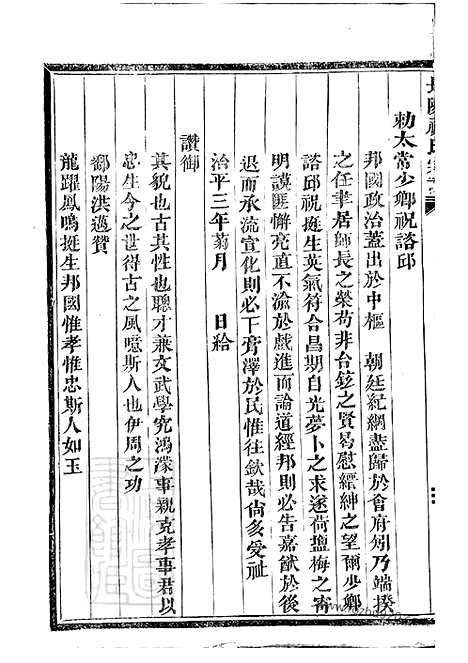 勅太常少卿祝諮邱
邦國政治蓋出於中樞 朝廷紀綱盡歸於會府矧乃端揆
之任聿居師長之榮苟非台鉉之賢曷慰縉紳之望爾少卿
諮邱祝挺生英氣符合昌期自光夢卜之求遂荷塩梅之寄
明謨匪懈亮直不渝於戲進而論道經邦則必告嘉猷於後
退而承流宣化則必下膏澤於民惟往欽哉尙多受祉
治平三年菊月 日給
讚御
其貌也古其性也聰才兼文武學究鴻濛事親克孝事君以
忠生今之世得古之風噫斯人也伊周之功
鄱陽洪邁贊
龍躍鳳鳴挺生邦國惟孝惟忠斯人如玉